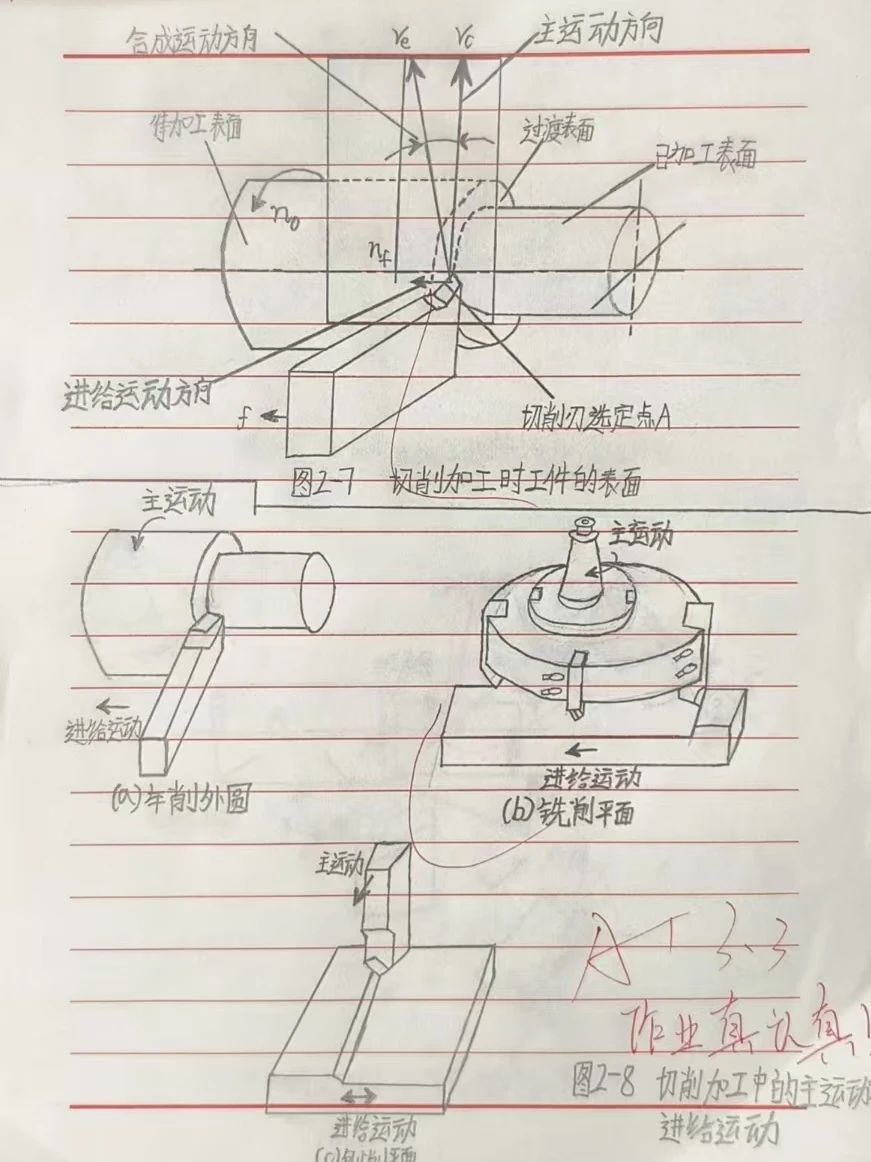 合成运动方向 νe νc 主运动方向
待加工表面 过渡表面 已加工表面
n₀
nf
进给运动方向
f 切削刃选定点A
图2-7 切削加工时工件的表面
主运动
主运动
进给运动
(a)车削外圆
进给运动
(b)铣削平面
主运动
A+ 3.3
作业真认真!
图2-8 切削加工中的主运动
进给运动
进给运动
(c)刨削平面